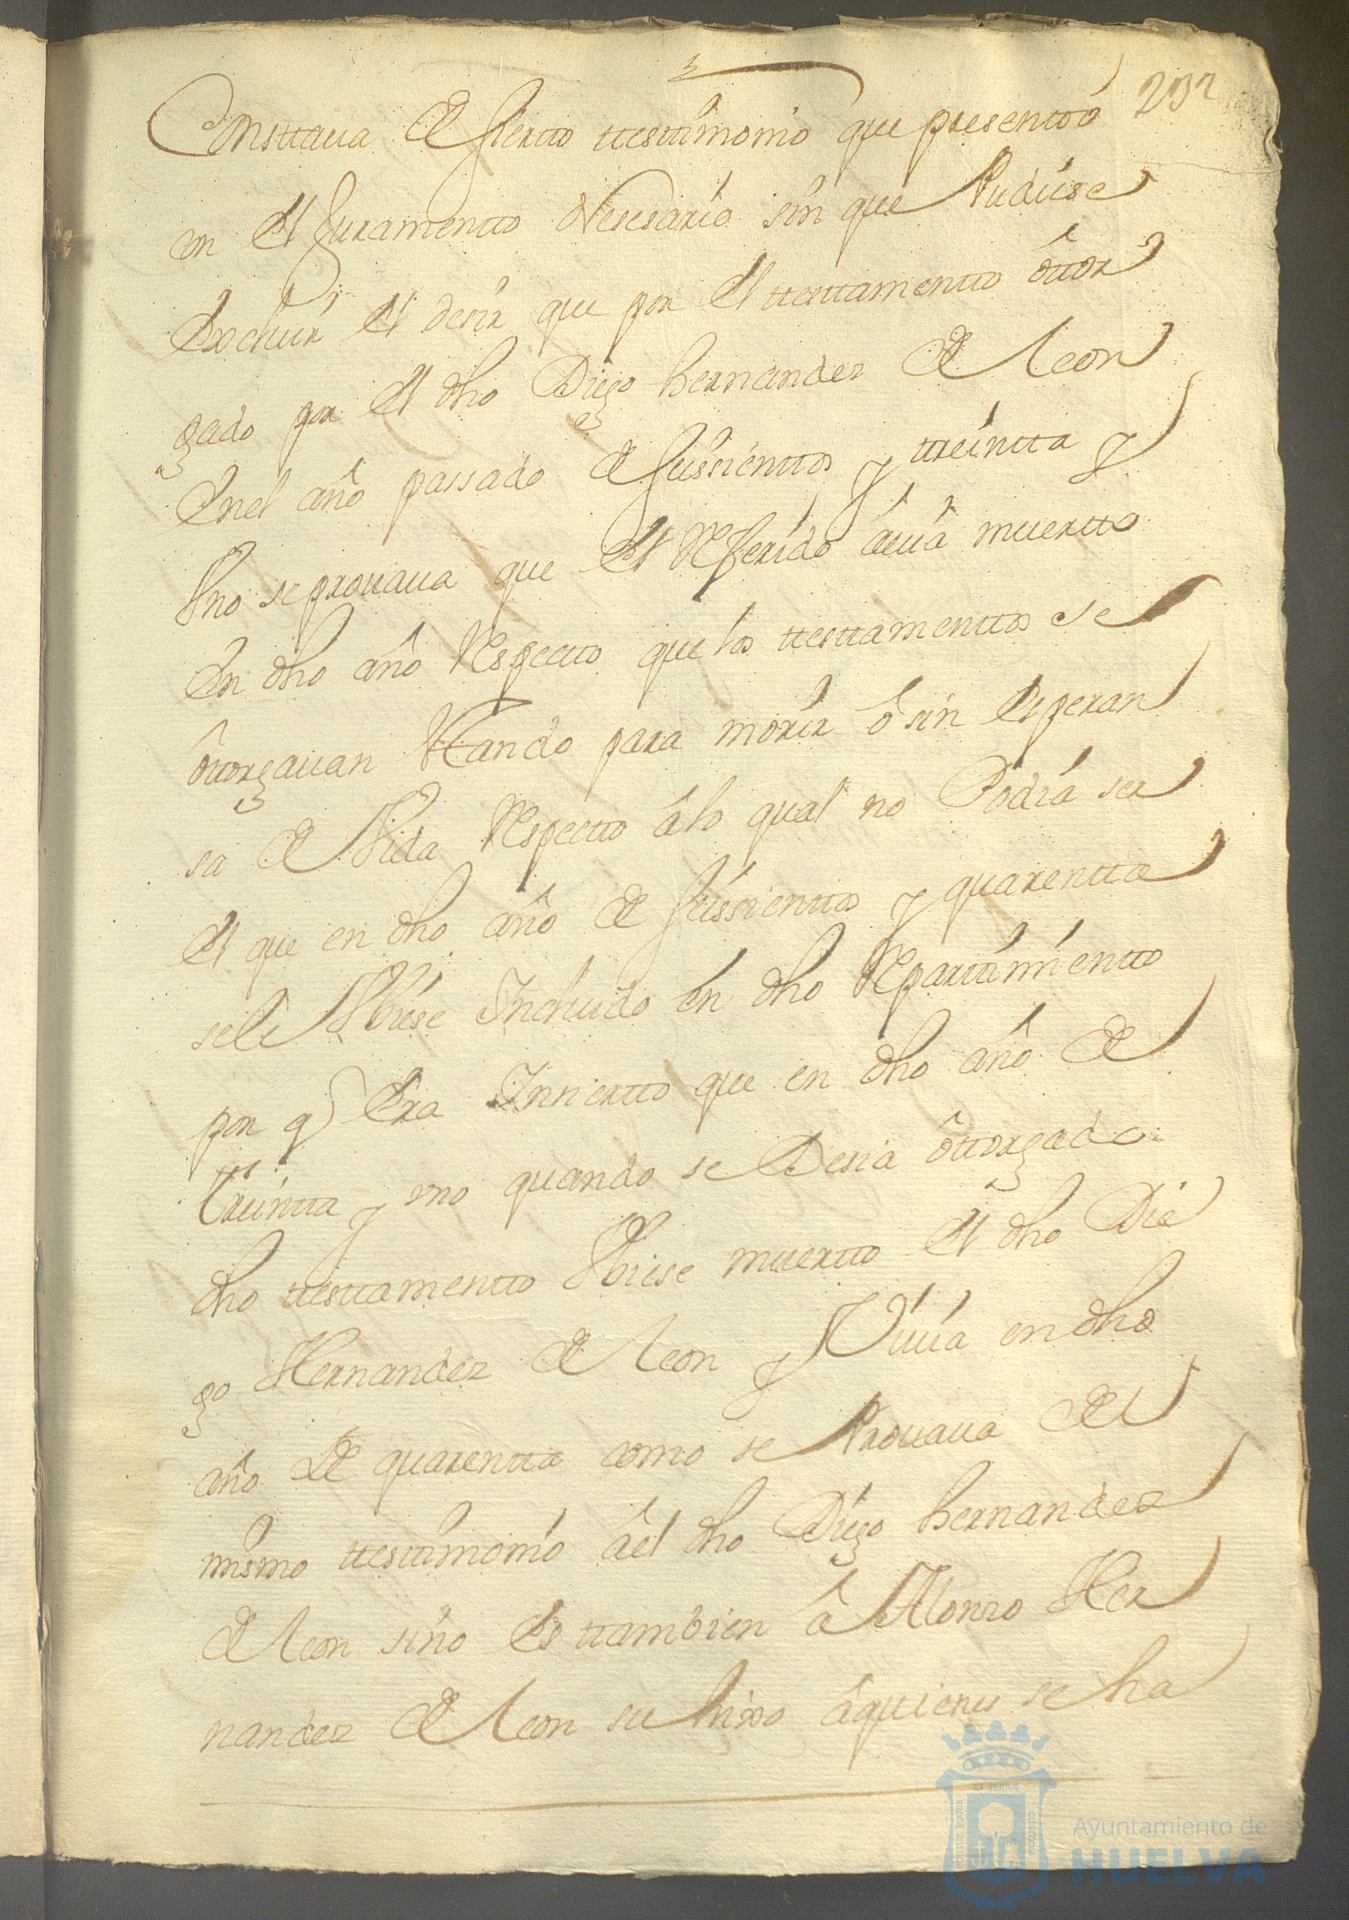 232
Consttaua de sierto ttesttimonio que presentto
en el Juramentto Nesesario sin que Pudiese
Excluir el desir que por el ttesttamentto ôttor
gado por el dho Diego hernandez de leon
Enel año passado de seissientos y ttreintta y
Vno se prouaua que el Referido auia muertto
En dho año Respectto que los ttesttamenttos se
ôttorgauan Uttando para morir ô sin Esperan
sa de Vida Respectto âlo qual no Podia ser
el que en dho año de seissienttos y quarentta
sele Vbiese Incluido en dho Reparttimientto
por q Era Insiertto que en dho año de
ttreintta y vno quando se Desia ôttorgado
dho ttesttamentto Vbiese muertto el dho Die
go Hernandez de leon y Viuia en dho
año De quarentta como se Prouaua del
mismo ttesttimonio âel dho Diego hernandez
de leon sino es ttambien â Alonso Her
nandez de leon su hixo âquienes se ha
Ayuntamiento de
HUELVA